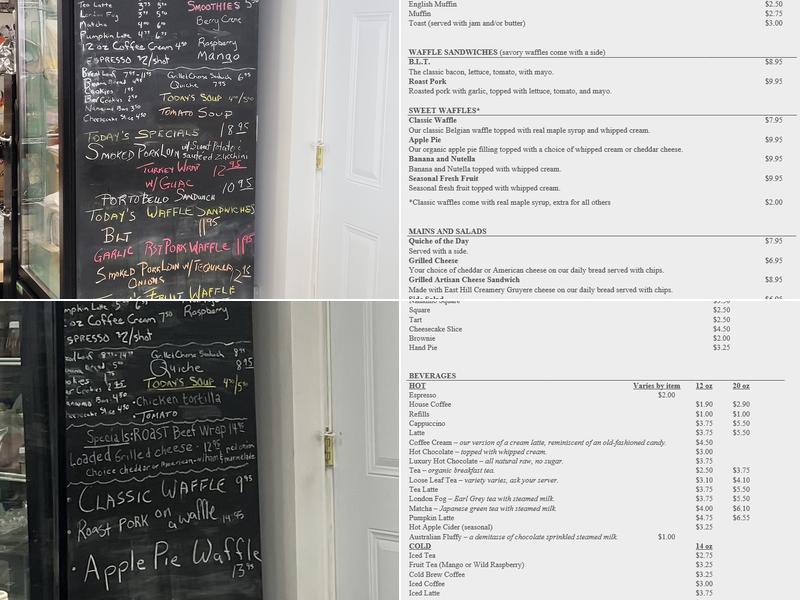 Tea Latte 3.75 5.50
London Fog
Matcha
Pumpkin Latte
12 oz Coffee Cream 4.50
ESPRESSO $2/shot
SMOOTHIES
Berry Crane
Raspberry
Mango
Cookies
Cheesecake Slice 4.50
Grilled Cheese Sandwich
Quiche 7.95
TODAY'S SOUP
TOMATO SOUP
TODAY'S SPECIALS
SMOKED PORK LOIN w/ Sweet Potato & Sauteed Zucchini 18.95
TURKEY WRAP W/ GUAC 12.95
PORTOBELLO SANDWICH 10.95
TODAY'S WAFFLE SANDWICHES
BLT 11.95
GARLIC RST PORK WAFFLE 11.95
SMOKED PORK LOIN W/ TEQUILA
ONIONS
FRUIT WAFFLE
English Muffin $2.50
Muffin $2.75
Toast (served with jam and/or butter) $3.00
WAFFLE SANDWICHES (savory waffles come with a side)
B.L.T. $8.95
The classic bacon, lettuce, tomato, with mayo.
Roast Pork $8.95
Roasted pork with garlic, topped with lettuce, tomato, and mayo.
SWEET WAFFLES*
Classic Waffle $7.95
Our classic Belgian waffle topped with real maple syrup and whipped cream.
Apple Pie $9.95
Our organic apple pie filling topped with a choice of whipped cream or cheddar cheese.
Banana and Nutella $9.95
Banana and Nutella topped with whipped cream.
Seasonal Fresh Fruit $9.95
Seasonal fresh fruit topped with whipped cream.
*Classic waffles come with real maple syrup, extra for all others $2.00
MAINS AND SALADS
Quiche of the Day $7.95
Served with a side.
Grilled Cheese $6.95
Your choice of cheddar or American cheese on our daily bread served with chips.
Grilled Artisan Cheese Sandwich $8.95
Made with East Hill Creamery Gruyere cheese on our daily bread served with chips.
Side Salad $6.95
Pumpkin Latte
oz Coffee Cream 4.50
ESPRESSO $2/shot
Raspberry
Grilled Cheese Sandwich 8.95
Quiche 8.95
TODAY'S SOUP 4.50/5.50
• Chicken tortilla
• TOMATO
Specials: ROAST Beef Wrap 14.95
Loaded Grilled cheese - 12.95
Choice cheddar or American
• CLASSIC WAFFLE 9.95
• Roast PORK on a waffle 14.95
• Apple Pie Waffle 13.95
Nanaimo Square $3.50
Square $2.50
Tart $2.50
Cheesecake Slice $4.50
Brownie $2.00
Hand Pie $3.25
BEVERAGES
HOT Varies by item 12 oz 20 oz
Espresso $2.00
House Coffee $1.90 $2.90
Refills $1.00 $1.00
Cappuccino $3.75 $5.50
Latte $3.75 $5.50
Coffee Cream – our version of a cream latte, reminiscent of an old-fashioned candy. $4.50
Hot Chocolate – topped with whipped cream. $3.00
Luxury Hot Chocolate – all natural raw, no sugar. $3.75
Tea – organic breakfast tea. $2.50 $3.75
Loose Leaf Tea – variety varies, ask your server. $3.10 $4.10
Tea Latte $3.75 $5.50
London Fog – Earl Grey tea with steamed milk. $3.75 $5.50
Matcha – Japanese green tea with steamed milk. $4.00 $6.10
Pumpkin Latte $4.75 $6.55
Hot Apple Cider (seasonal) $3.25
Australian Fluffy – a demitasse of chocolate sprinkled steamed milk. $1.00
COLD 14 oz
Iced Tea $2.75
Fruit Tea (Mango or Wild Raspberry) $3.25
Cold Brew Coffee $3.25
Iced Coffee $3.00
Iced Latte $3.75